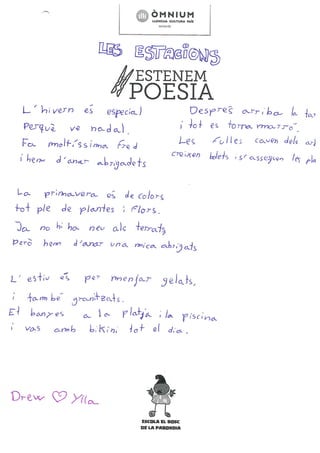 ÒMNIUM
LLENGUA CULTURA PAÍS
LES ESTACIONS
#ESTENEM
POESIA
L'hivern és especial
Perquè ve nadal.
Fa moltíssima fred
i hem d'anar abrigadets
La primavera és de colors
tot ple de plantes i flors.
Ja no hi ha neu als terrats
Però hem d'anar una mica abrigats
L'estiu és per menjar gelats,
i també granitzats.
Et banyes a la platja i la piscina
i vas amb bikini tot el dia.
Després arriba la tar
i tot es torna marró.
Les fulles cauen dels ar
creixen bolets i s'assequen les pla
Drew ♡ Ylla
ESCOLA EL BOSC
DE LA PABORDIA